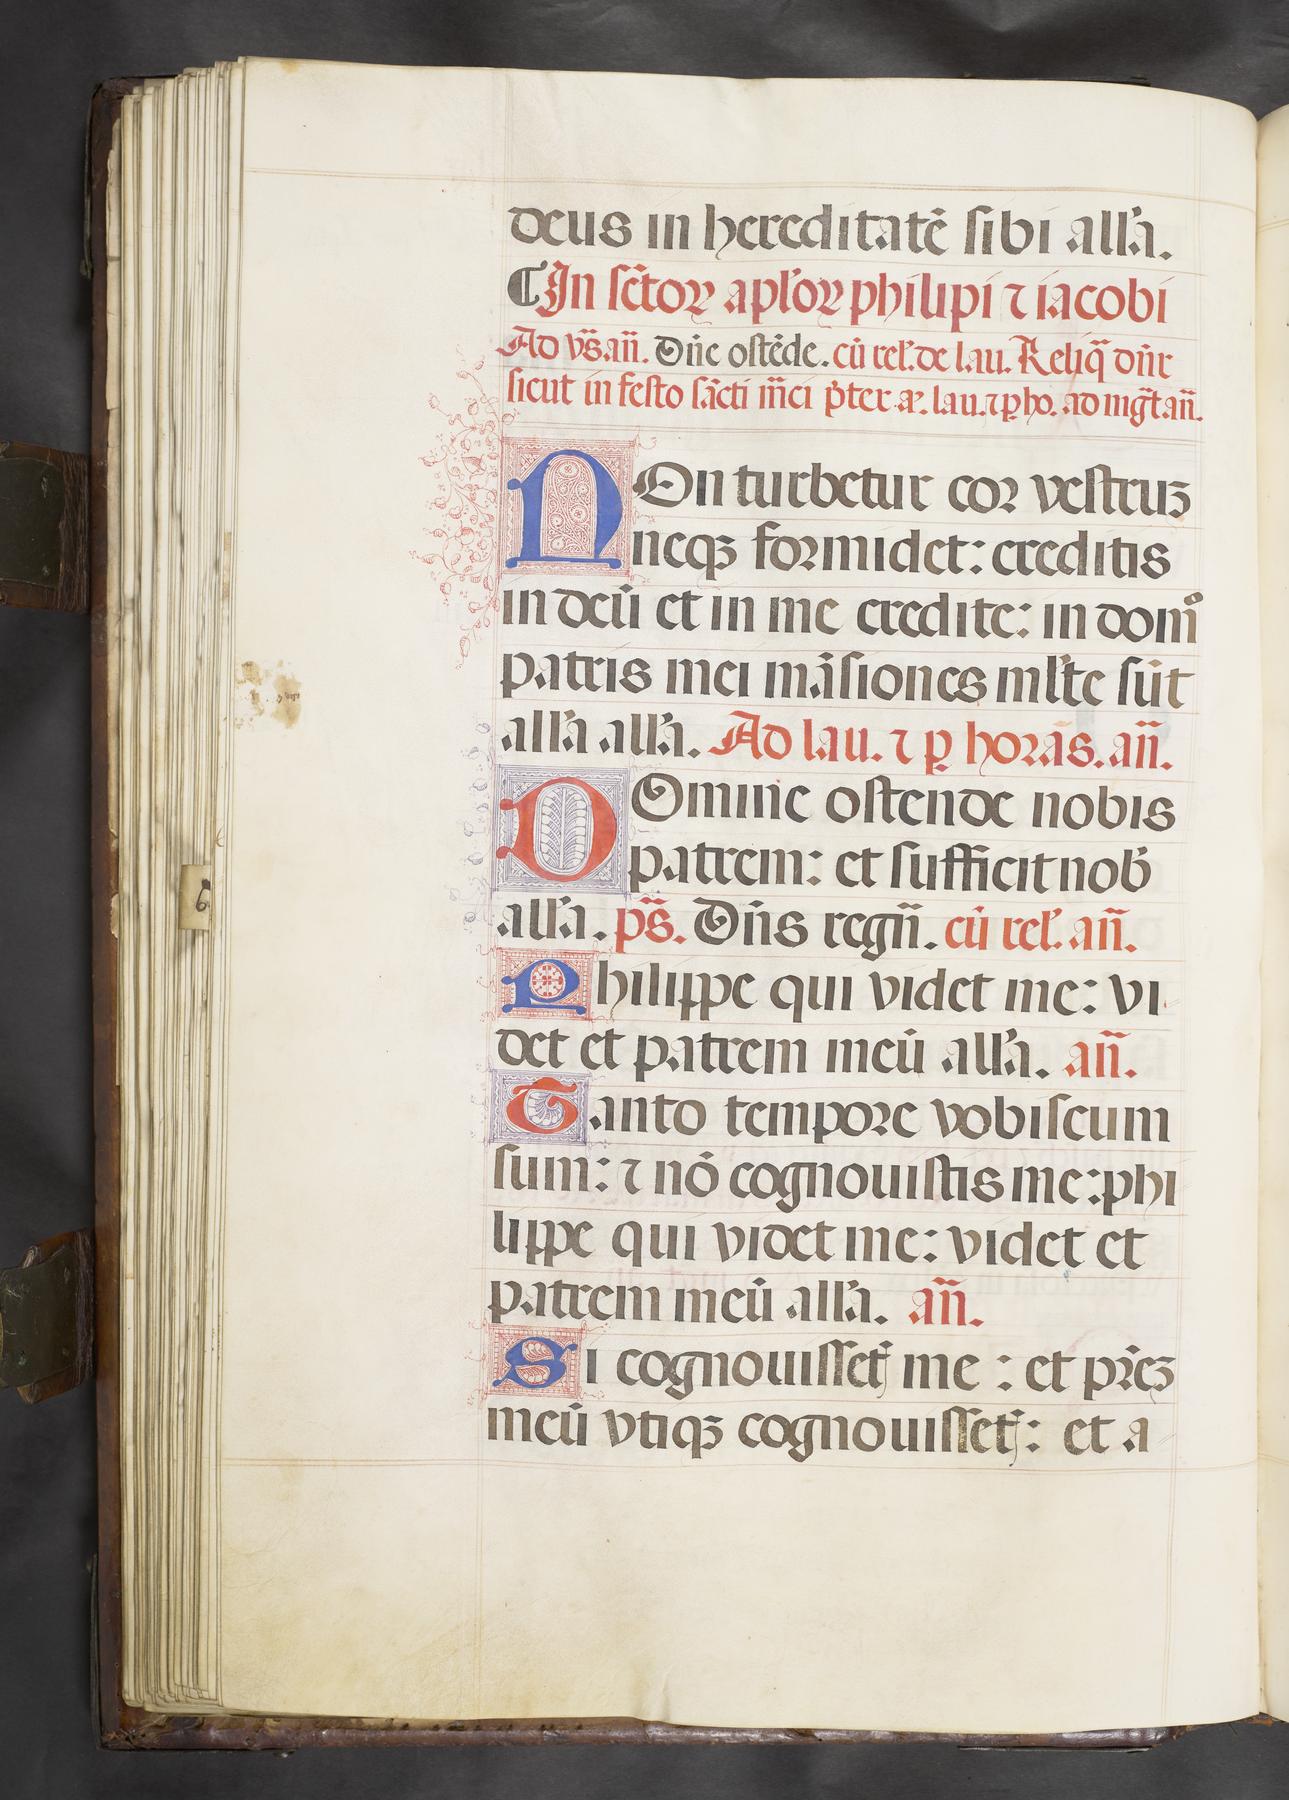 deus in hereditatē sibi all'a.
¶ In sc̄toꝝ apl'oꝝ philipi ⁊ iacobi
Ad vs̄. an̄. Dn̄e ostēde. cū rel'. de lau. Reliq̄ dn̄r
sicut in festo sācti m̄ci p̄ter a. lau. ⁊ ꝑ ho. ad mḡt an̄.
NOn turbetur coꝛ vestruꝫ
neqꝫ foꝛmidet: creditis
in deū et in me credite: in domͦ
patris mei māsiones ml'te sūt
all'a all'a. Ad lau. ⁊ ꝑ horas. an̄.
DOmine ostende nobis
patrem: et sufficit nob̄
all'a. ps̄. Dn̄s regn̄. cū rel'. an̄.
Philippe qui videt me: vi
det et patrem meū all'a. an̄.
Tanto tempoꝛe vobiscum
sum: ⁊ nō cognouistis me: phi
lippe qui videt me: videt et
patrem meū all'a. an̄.
Si cognouissetꝭ me: et pr̄eꝫ
meū vtiqꝫ cognouissetꝭ: et a
6